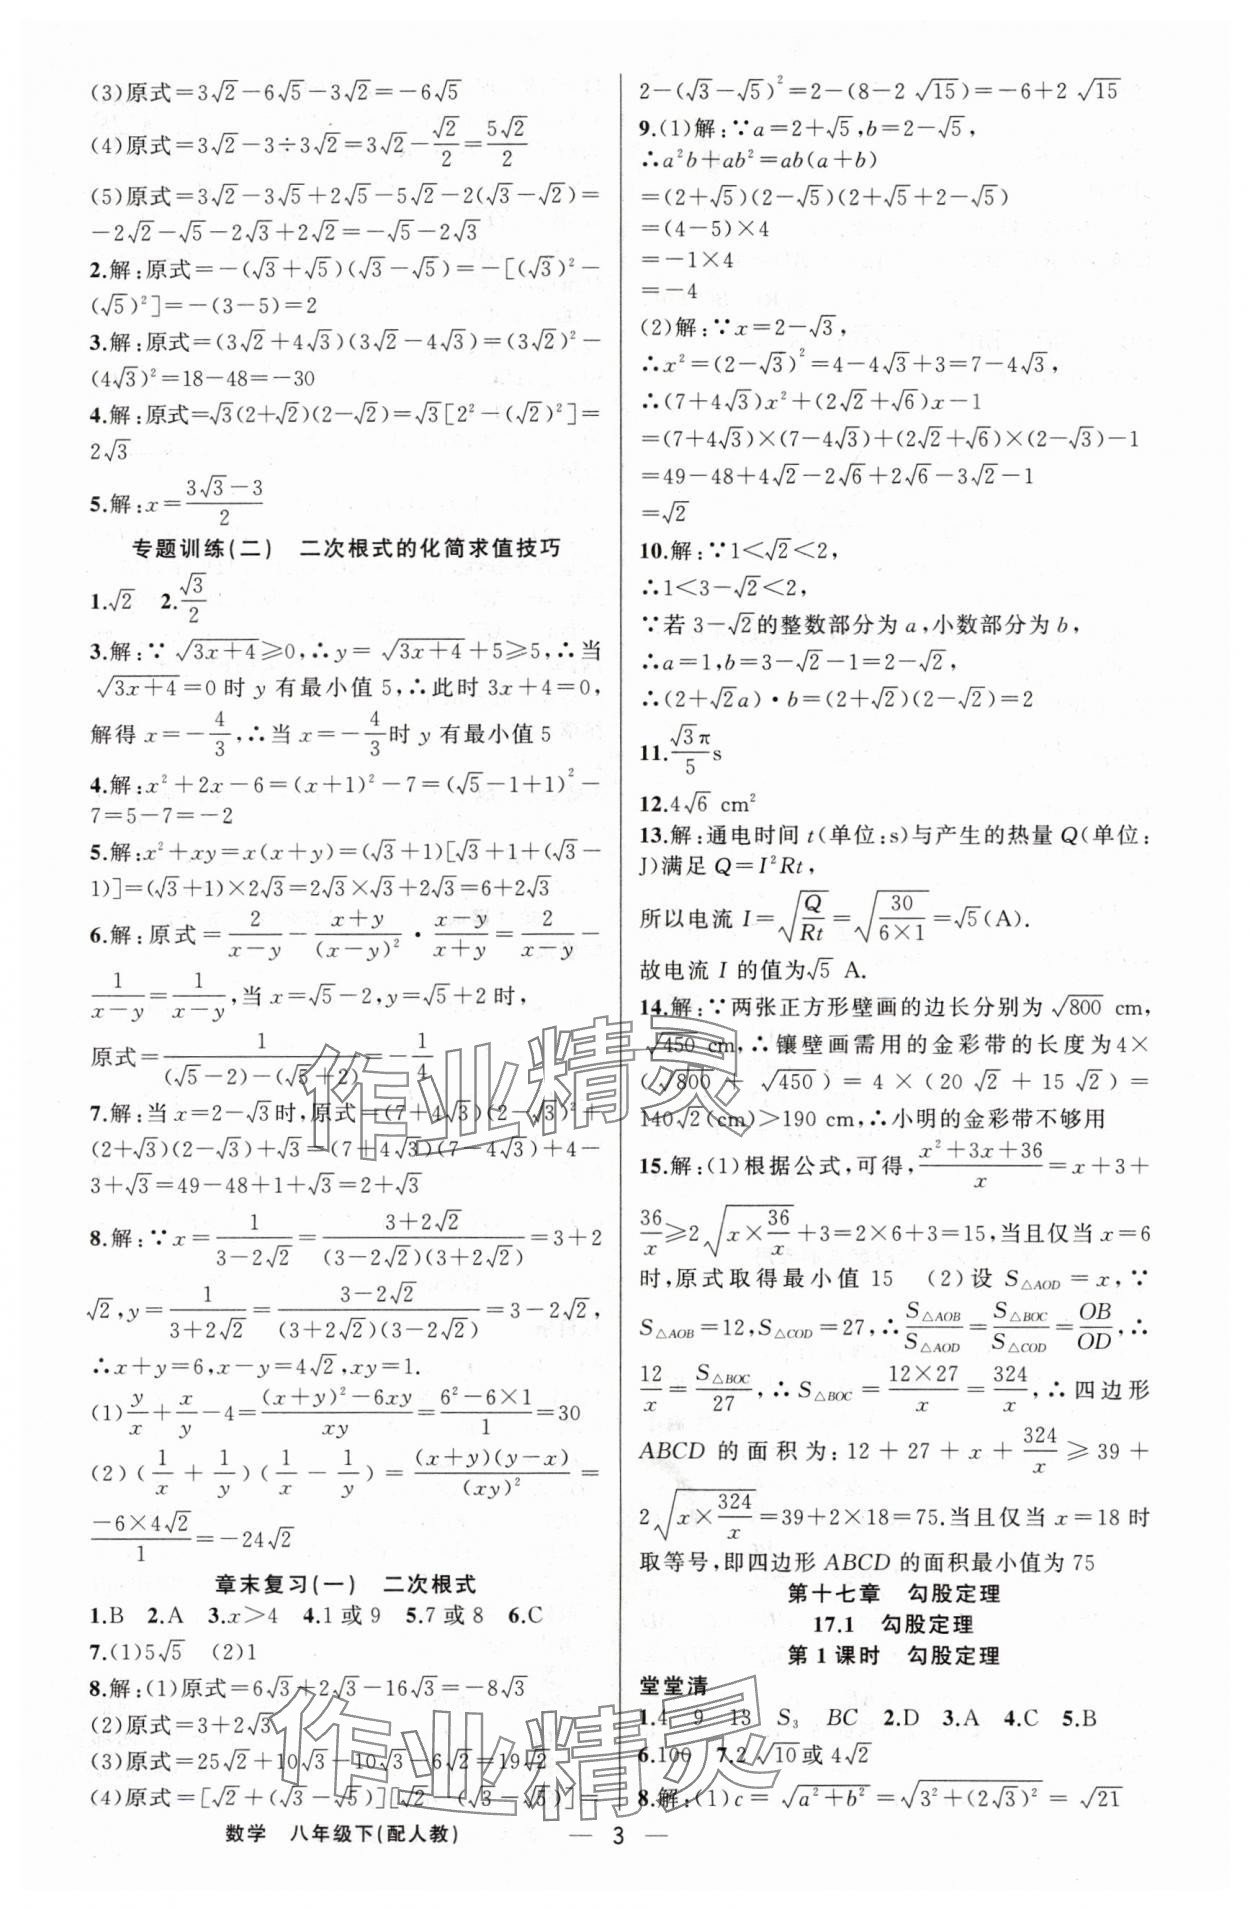 (3)原式=3√2-6√5-3√2=-6√5
(4)原式=3√2-3÷3√2=3√2-√2/2=5√2/2
(5)原式=3√2-3√5+2√5-5√2-2(√3-√2)=
-2√2-√5-2√3+2√2=-√5-2√3
2.解:原式=-(√3+√5)(√3-√5)=-[(√3)²-
(√5)²]=-(3-5)=2
3.解:原式=(3√2+4√3)(3√2-4√3)=(3√2)²-
(4√3)²=18-48=-30
4.解:原式=√3(2+√2)(2-√2)=√3[2²-(√2)²]=
2√3
5.解:x=(3√3-3)/2
专题训练(二) 二次根式的化简求值技巧
1.√2 2.√3/2
3.解:∵√(3x+4)≥0,∴y=√(3x+4)+5≥5,∴当
√(3x+4)=0时y有最小值5,∴此时3x+4=0,
解得x=-4/3,∴当x=-4/3时y有最小值5
4.解:x²+2x-6=(x+1)²-7=(√5-1+1)²-
7=5-7=-2
5.解:x²+xy=x(x+y)=(√3+1)[√3+1+(√3-
1)]=(√3+1)×2√3=2√3×√3+2√3=6+2√3
6.解:原式=2/(x-y)-(x+y)/(x-y)²·(x-y)/(x+y)=2/(x-y)-
1/(x-y)=1/(x-y),当x=√5-2,y=√5+2时,
原式=1/((√5-2)-(√5+2))=-1/4
7.解:当x=2-√3时,原式=(7+4√3)(2-√3)²+
(2+√3)(2-√3)+√3=(7+4√3)(7-4√3)+4-
3+√3=49-48+1+√3=2+√3
8.解:∵x=1/(3-2√2)=(3+2√2)/((3-2√2)(3+2√2))=3+2
√2,y=1/(3+2√2)=(3-2√2)/((3+2√2)(3-2√2))=3-2√2,
∴x+y=6,x-y=4√2,xy=1.
(1)y/x+x/y-4=((x+y)²-6xy)/xy=(6²-6×1)/1=30
(2)(1/x+1/y)(1/x-1/y)=(x+y)(y-x)/(xy)²=
(-6×4√2)/1=-24√2
章末复习(一) 二次根式
1.B 2.A 3.x>4 4.1或9 5.7或8 6.C
7.(1)5√5 (2)1
8.解:(1)原式=6√3+2√3-16√3=-8√3
(2)原式=3+2√3
(3)原式=25√2+10√3-10√3-6√2=19√2
(4)原式=[√2+(√3-√5)][√2-(√3-√5)]=
2-(√3-√5)²=2-(8-2√15)=-6+2√15
9.(1)解:∵a=2+√5,b=2-√5,
∴a²b+ab²=ab(a+b)
=(2+√5)(2-√5)(2+√5+2-√5)
=(4-5)×4
=-1×4
=-4
(2)解:∵x=2-√3,
∴x²=(2-√3)²=4-4√3+3=7-4√3,
∴(7+4√3)x²+(2√2+√6)x-1
=(7+4√3)×(7-4√3)+(2√2+√6)×(2-√3)-1
=49-48+4√2-2√6+2√6-3√2-1
=√2
10.解:∵1<√2<2,
∴1<3-√2<2,
∵若3-√2的整数部分为a,小数部分为b,
∴a=1,b=3-√2-1=2-√2,
∴(2+√2a)·b=(2+√2)(2-√2)=2
11.√3π/5 s
12.4√6 cm²
13.解:通电时间t(单位:s)与产生的热量Q(单位:
J)满足Q=I²Rt,
所以电流I=√(Q/Rt)=√(30/(6×1))=√5(A).
故电流I的值为√5 A.
14.解:∵两张正方形壁画的边长分别为√800 cm,
√450 cm,∴镶壁画需用的金彩带的长度为4×
(√800+√450)=4×(20√2+15√2)=
140√2(cm)>190 cm,∴小明的金彩带不够用
15.解:(1)根据公式,可得,(x²+3x+36)/x=x+3+
36/x≥2√(x×36/x)+3=2×6+3=15,当且仅当x=6
时,原式取得最小值15 (2)设S△AOD=x,∵
S△AOB=12,S△COD=27,∴S△AOB/S△AOD=S△BOC/S△COD=OB/OD,∴
12/x=S△BOC/27,∴S△BOC=(12×27)/x=324/x,∴四边形
ABCD的面积为:12+27+x+324/x≥39+
2√(x×324/x)=39+2×18=75.当且仅当x=18时
取等号,即四边形ABCD的面积最小值为75
第十七章 勾股定理
17.1 勾股定理
第1课时 勾股定理
堂堂清
1.4 9 13 S₃ BC 2.D 3.A 4.C 5.B
6.100 7.2√10或4√2
8.解:(1)c=√(a²+b²)=√(3²+(2√3)²)=√21
数学 八年级下(配人教)
— 3 —
作业精灵
作业精灵